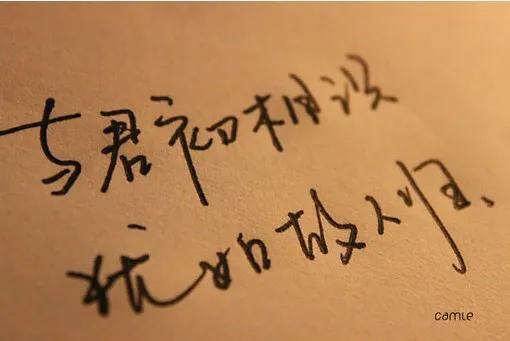 与君初相识
犹如故人归、
camie